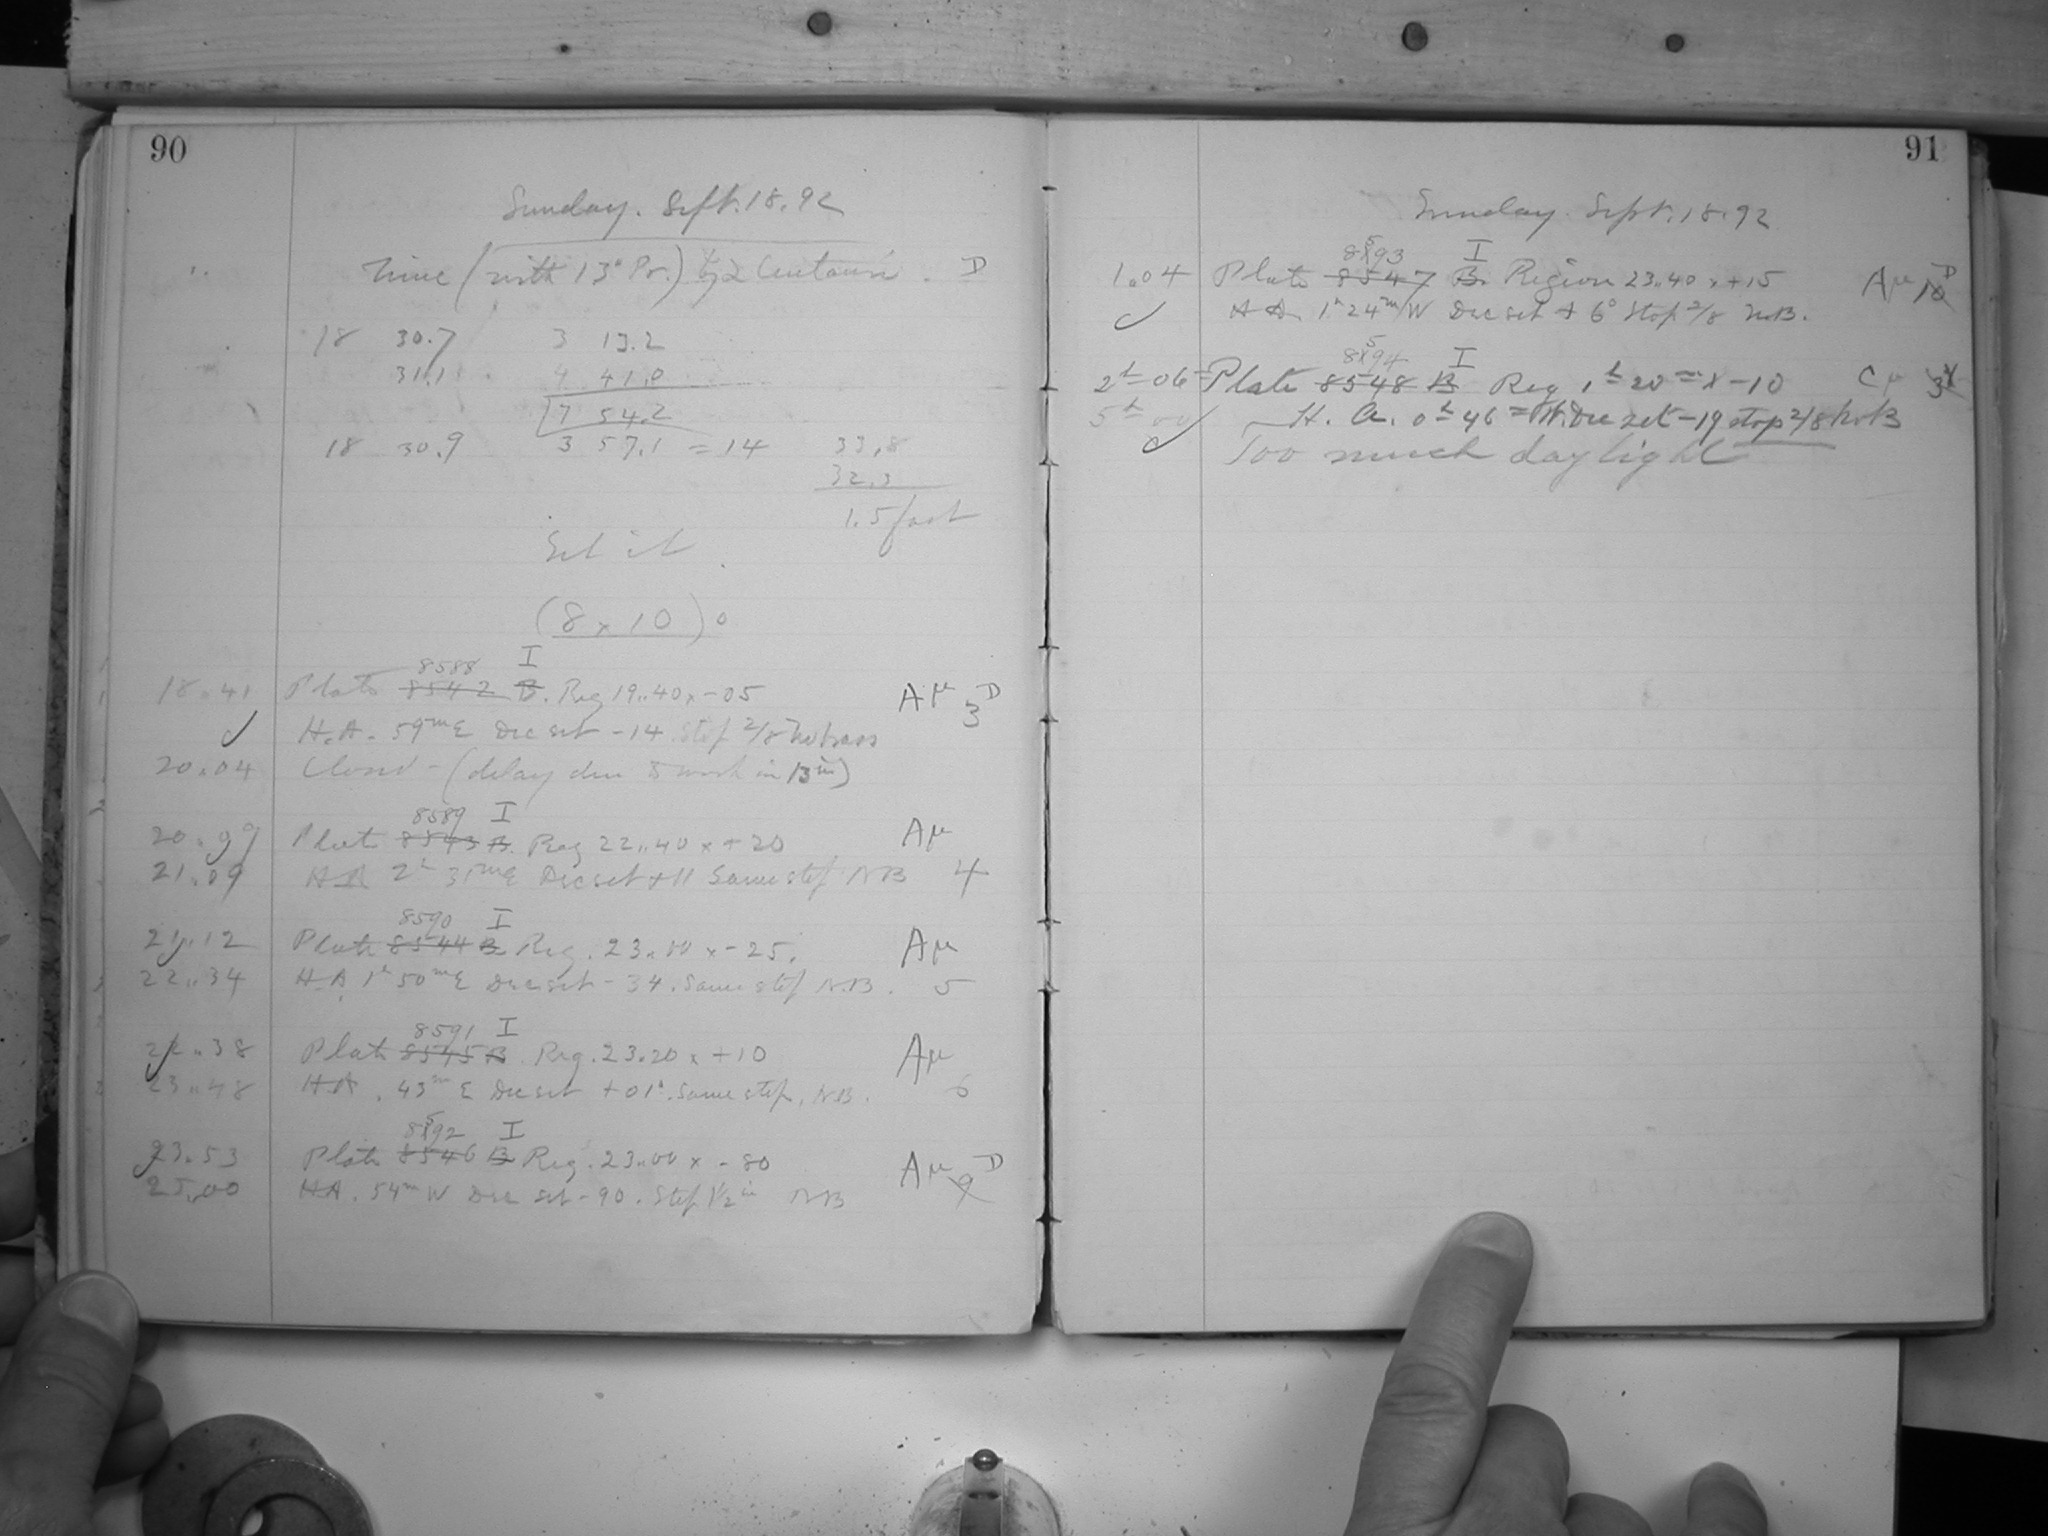 90
Sunday. Sept. 18. 92
Time (with 13" Pr.) by α Centauri. D
18 30.7 3 13.2
31.1 4 41.0
7 54.2
18 30.9 3 57.1 = 14 33.8
32.3
1.5 fast
Set it
(8 x 10)
8588 I
18.41 Plate 8542 B. Reg 19..40 x -05 Aμ 3 D
H.A. 59m E Dec set -14 Stop 2/8 No bass
20.04 Closed - (delay due to work in 13in)
8589 I
Plate 8543 B. Reg 22..40 x +20 Aμ
21.09 HA 2h 31m E Dec set +11 Same stop NB 4
8590 I
21.12 Plate 8544 B Reg. 23..00 x -25. Aμ
22..34 HA 1h 50m E Dec set -34. Same stop N.B. 5
8591 I
22..38 Plate 8545 B. Reg. 23.20 x +10 Aμ
23..48 HA. 43m E Dec set +01°. Same stop, N.B. 6
8592 I
23.53 Plate 8546 B Reg. 23..00 x -80 Aμ 9 D
25.00 HA. 54m W Dec set -90. Stop 1/2 in NB
91
Sunday. Sept. 18.92
8593 I
1.04 Plate 8547 B. Region 23.40 x +15 Aμ 10 D
HA. 1h 24m W Dec set + 6° Stop 2/8 No B.
8594 I
2h 06m Plate 8548 B Reg 1h 20m x -10 Cμ 3
5h 00 H. A. 0h 46m W. Dec set -19 stop 2/8 No B
Too much daylight